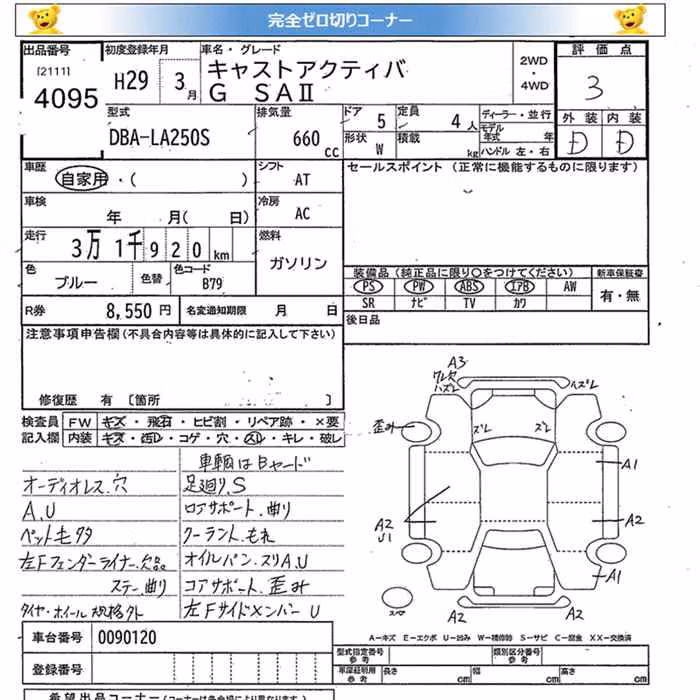 完全ゼロ切りコーナー
出品番号 初度登録年月 車名・グレード 2WD・4WD 評価点
[2111]
4095 H29 3月 キャストアクティバ 3
G SAⅡ
外装 内装
D D
型式 排気量 ドア 5 定員 4人 ディーラー・並行
DBA-LA250S 660cc 形状 W 積載 kg モデル年式 年
ハンドル 左・右
車歴 シフト セールスポイント(正常に機能するものに限ります)
自家用・( ) AT
車検 冷房
年 月( 日) AC
走行 燃料
3万1千920km ガソリン
色 色替 色コード 装備品(純正品に限り○をつけてください) 新車保証書
ブルー B79 PS PW ABS エアB AW 有・無
SR ナビ TV カワ
R券 8,550円 名変通知期限 月 日 後日品
注意事項申告欄(不具合内容等は具体的に記入して下さい)
修復歴 有 [箇所 ]
検査員 FW キズ・飛石・ヒビ割・リペア跡・×要
記入欄 内装 キズ・汚レ・コゲ・穴・スレ・キレ・破レ
車輌はBヤード
オーディオレス.穴 足廻り.S
A.U ロアサポート.曲り
ペット毛多 クーラント.もれ
左Fフェンダーライナー.欠品 オイルパン.スリA.U
ステー.曲り コアサポート.歪み
タイヤ・ホイール規格外 左FサイドメンバーU
A3
ワレ穴
ハズレ
ハズレ
歪み
ズレ ズレ
A1
A2
U1
A2
A1
スペア
A2 A2
A-キズ E-エクボ U-凹み W-補修跡 S-サビ C-腐食 XX-交換済
車台番号 0090120
型式指定番号 参考 類別区分番号 参考
登録番号
車庫証明用 参考 長さ cm 幅 cm 高さ cm
希望出品コーナー